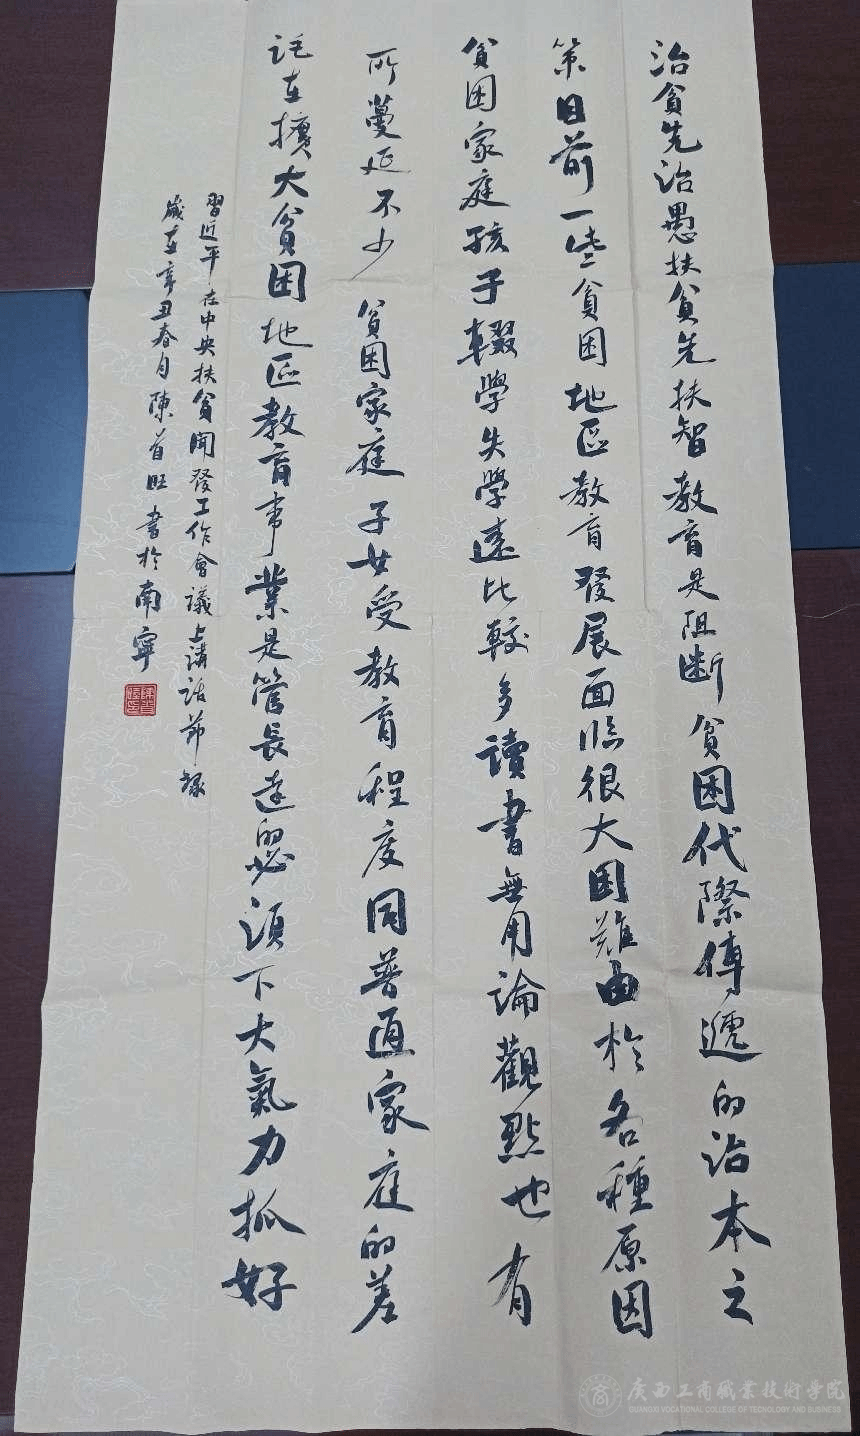 治貧先治愚扶貧先扶智教育是阻断貧困代際傳遞的治本之
策目前一些貧困地區教育發展面臨很大困難由於各種原因
貧困家庭孩子輟學失學還比較多讀書無用論觀點也有
所蔓延不少貧困家庭子女受教育程度同普通家庭的差
距在擴大貧困地區教育事業是管長遠的必須下大氣力抓好
習近平在中央扶貧開發工作會議上講話節錄
歲在辛丑春月陳首旺書於南寧
廣西工商職業技術學院
GUANGXI VOCATIONAL COLLEGE OF TECNOLOGY AND BUSINESS